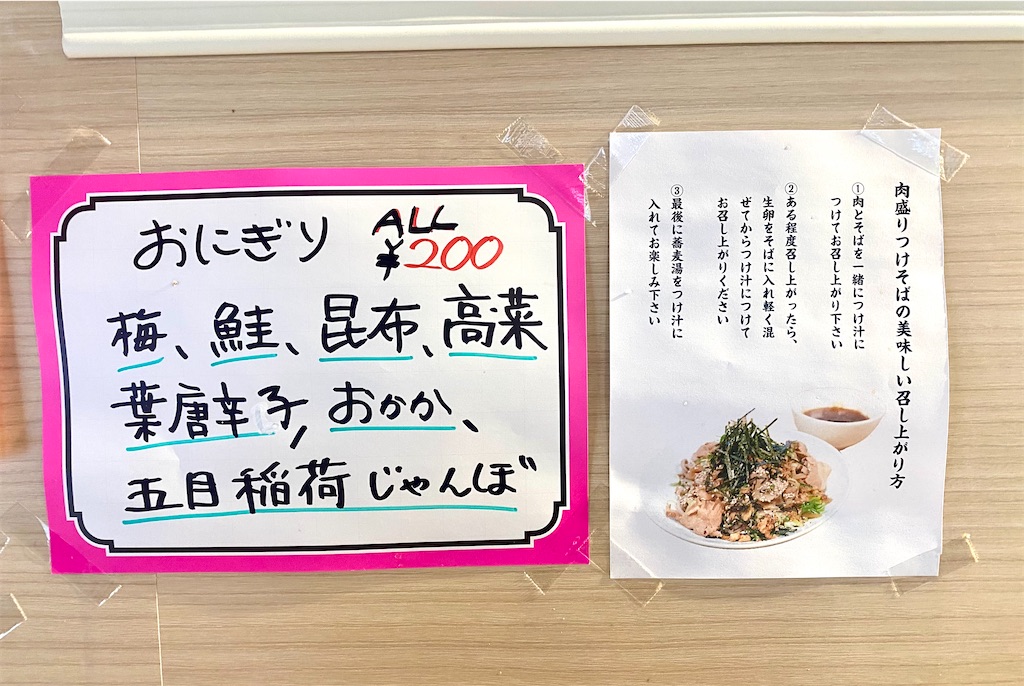 おにぎり ALL ¥200
梅、鮭、昆布、高菜
葉唐辛子、おかか、
五目稲荷じゃんぼ
肉盛りつけそばの美味しい召し上がり方
①肉とそばを一緒につけ汁に
つけてお召し上がり下さい
②ある程度召し上がったら、
生卵をそばに入れ軽く混
ぜてからつけ汁につけて
お召し上がりください
③最後に蕎麦湯をつけ汁に
入れてお楽しみ下さい